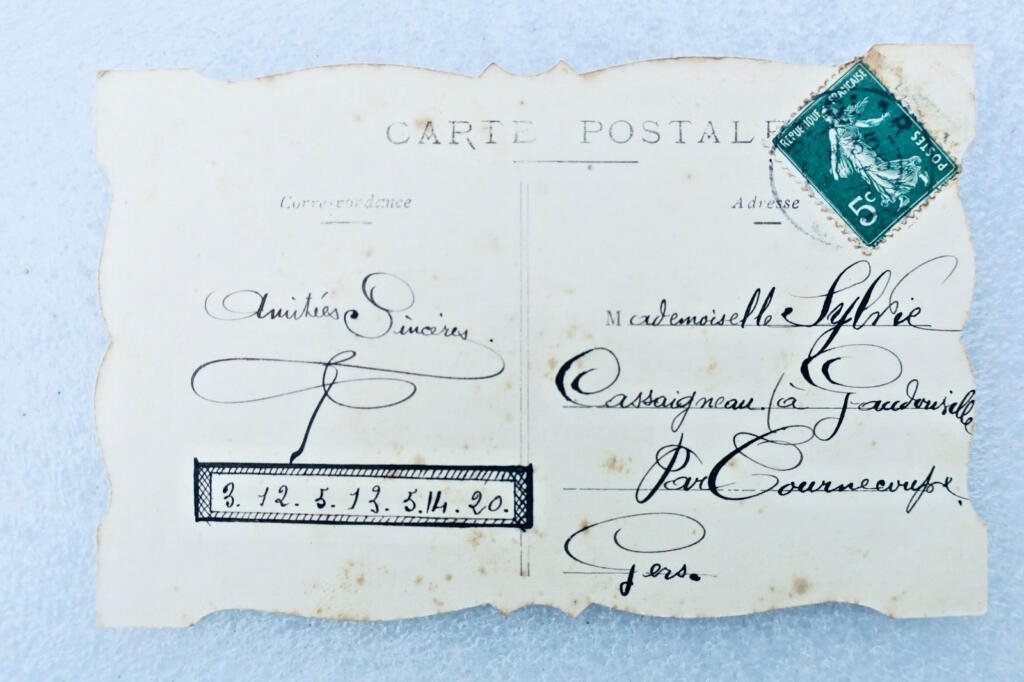 CARTE POSTALE
REPUBLIQUE FRANÇAISE
POSTES
5c
Correspondance
Adresse
Amitiées Sincères
3. 12. 5. 13. 5. 14. 20.
Mademoiselle Sylvie
Cassaigneau (à Gaudouzelle
Par Tournecoupe.
Gers.